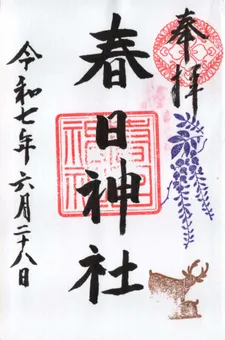 奉拝
春日神社
令和七年六月二十八日